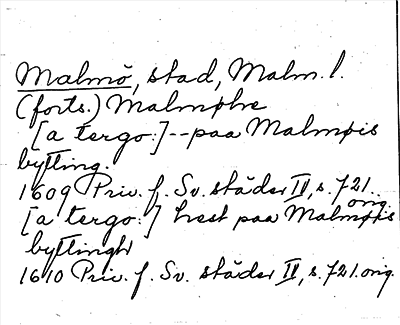 Malmö, stad, Malm. l.
(forts.) Malmøhe
[a tergo:] -- paa Malmøis
bytting.
1609 Priv. f. Sv. städer IV, s. 721.
orig.
[a tergo:] hest paa Malmøiis
byttingh
1610 Priv. f. Sv. städer IV, s. 721. orig.